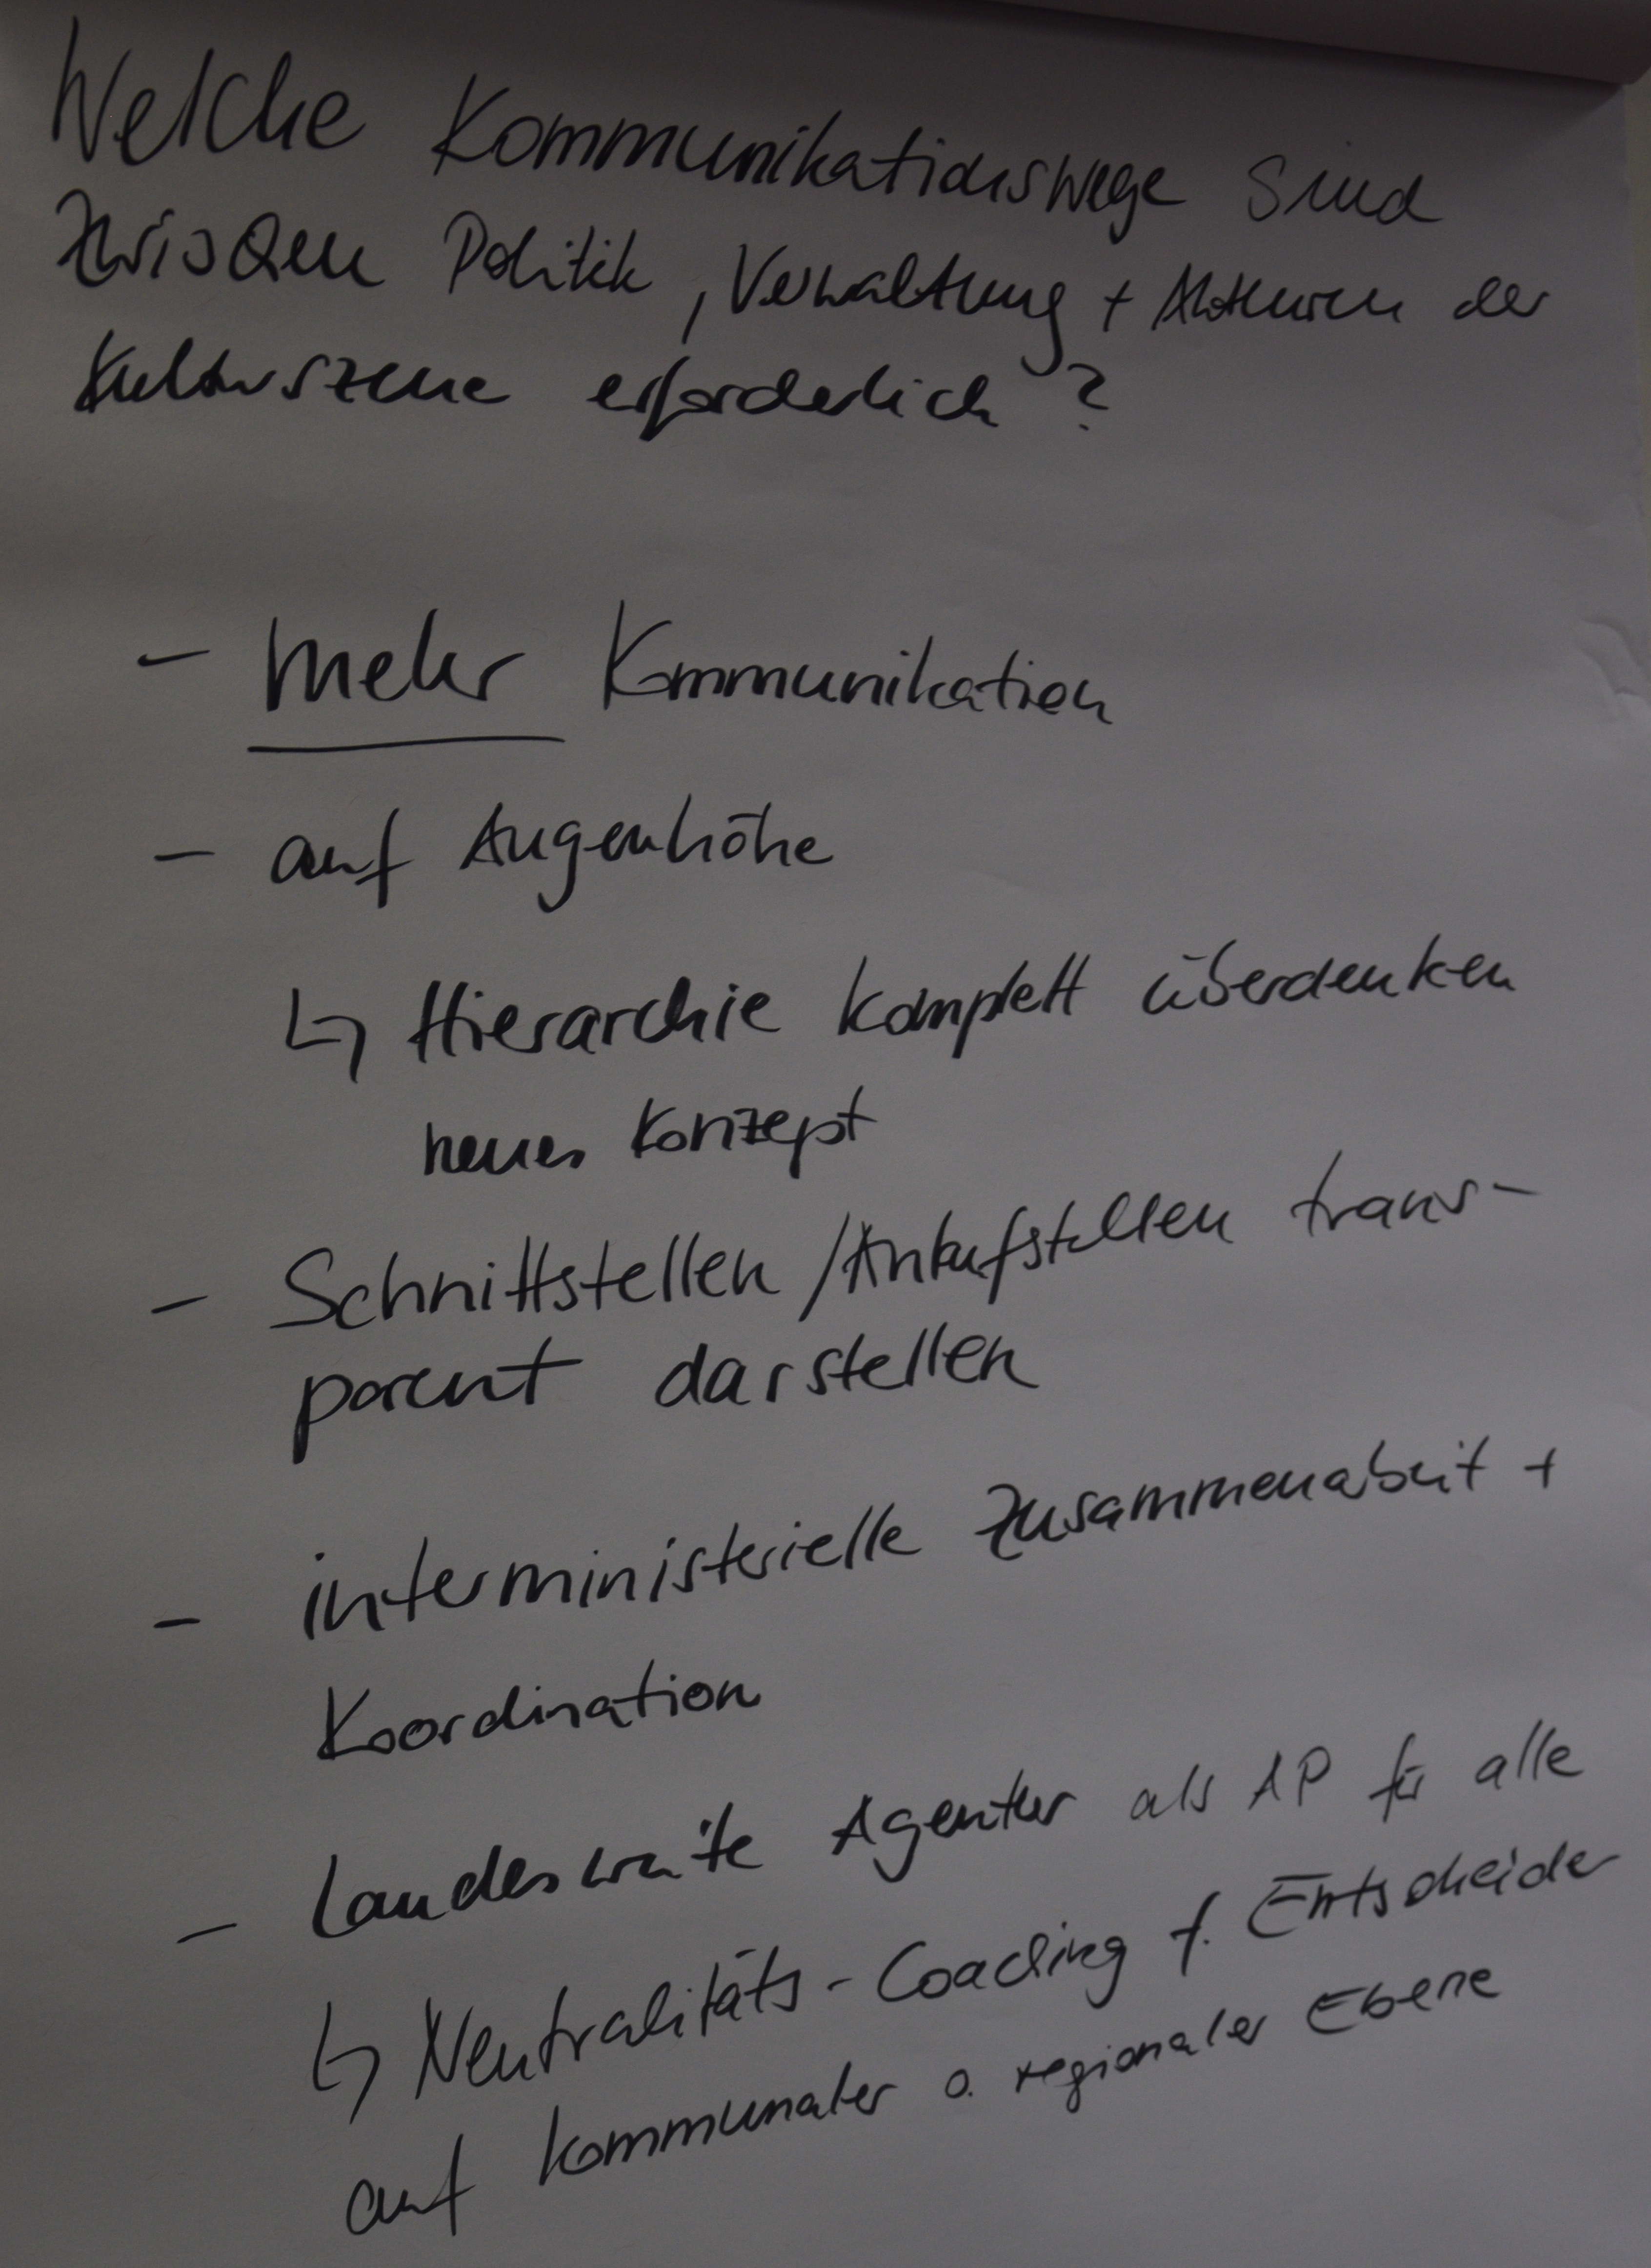 Welche Kommunikationswege sind
zwischen Politik, Verwaltung + Akteuren der
Kulturszene erforderlich?
- mehr Kommunikation
- auf Augenhöhe
↳ Hierarchie komplett überdenken
neues Konzept
- Schnittstellen/Anlaufstellen trans-
parent darstellen
- interministerielle Zusammenarbeit +
Koordination
- Landesweite Agentur als AP für alle
↳ Neutralitäts-Coaching f. Entscheider
auf kommunaler o. regionaler Ebene